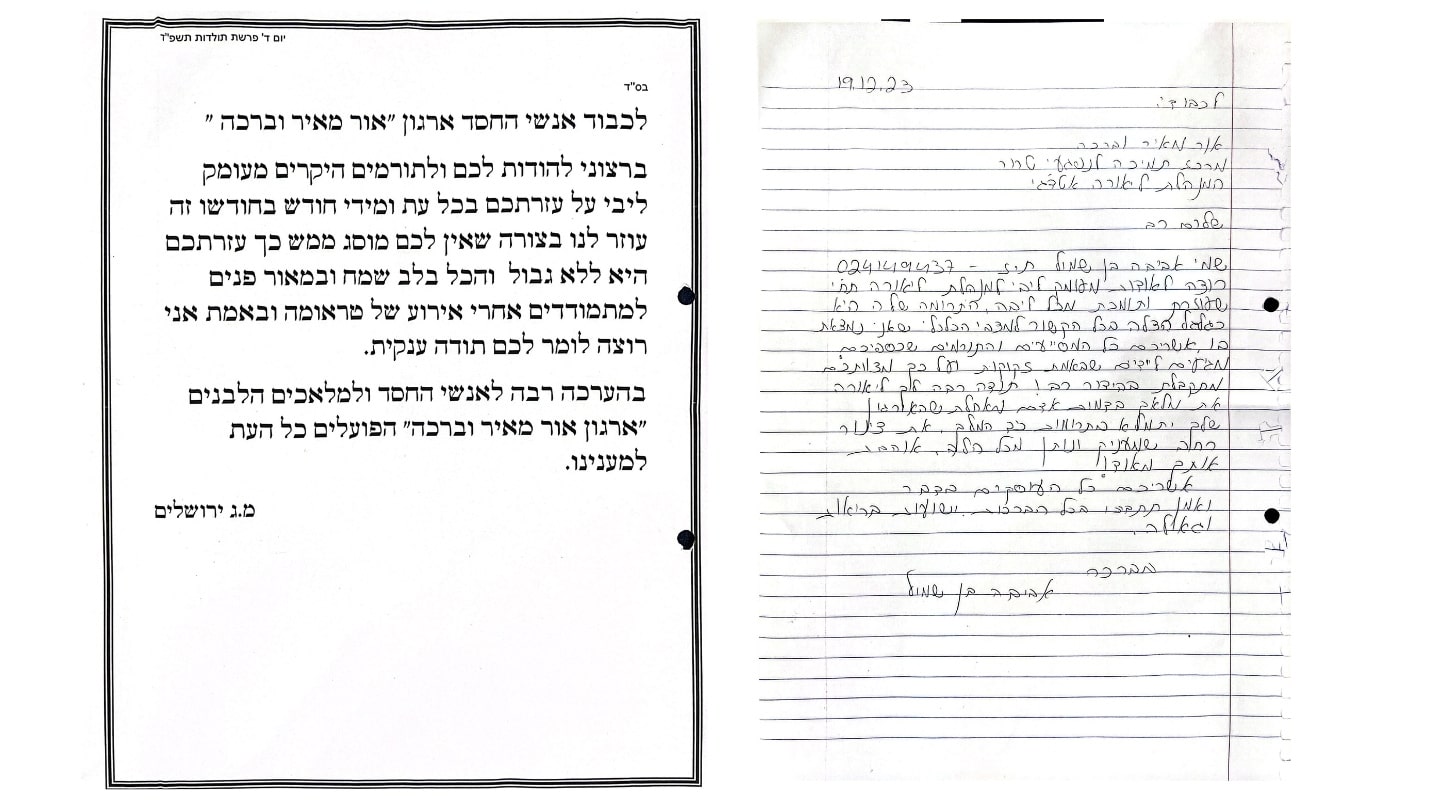 יום ד' פרשת תולדות תשפ"ד
בס"ד
לכבוד אנשי החסד ארגון "אור מאיר וברכה "
ברצוני להודות לכם ולתורמים היקרים מעומק
ליבי על עזרתכם בכל עת ומידי חודש בחודשו זה
עוזר לנו בצורה שאין לכם מוסג ממש כך עזרתכם
היא ללא גבול והכל בלב שמח ובמאור פנים
למתמודדים אחרי אירוע של טראומה ובאמת אני
רוצה לומר לכם תודה ענקית.
בהערכה רבה לאנשי החסד ולמלאכים הלבנים
"ארגון אור מאיר וברכה" הפועלים כל העת
למענינו.
מ.ג ירושלים
19.12.23
לכבוד:
אור מאיר וברכה
מרכז תמיכה לנפגעי טרור
המנהלת ליאורה
שלום רב
שמי אביבה בן שמול ת.ז -
רוצה להודות מעומק ליבי למנהלת ליאורה
שעוזרת ותומכת מכל ליבה, התרומה שלה היא
כגלגל הצלה בכל הקשור למצבי הכלכלי שאני נמצאת
בו, אשריכם כל המסייעים והתורמים שכספיכם
מגיעים לידים שבאמת זקוקות ועל כך מצוותיכם
מתקבלת בהידור רב! תודה רבה לך ליאורה
את מלאך בדמות אדם מאחלת שהארגון
שלך יתמלא בתרומות כך המלך, את צינור
רחב שמעניק ונותן מכל הלב, אוהבת
אותך מאוד!
אשריכם כל העוסקים בדבר
ואמן תתברכו בכל הברכות, ישועות בריאות
וגאולה.
בברכה
אביבה בן שמול